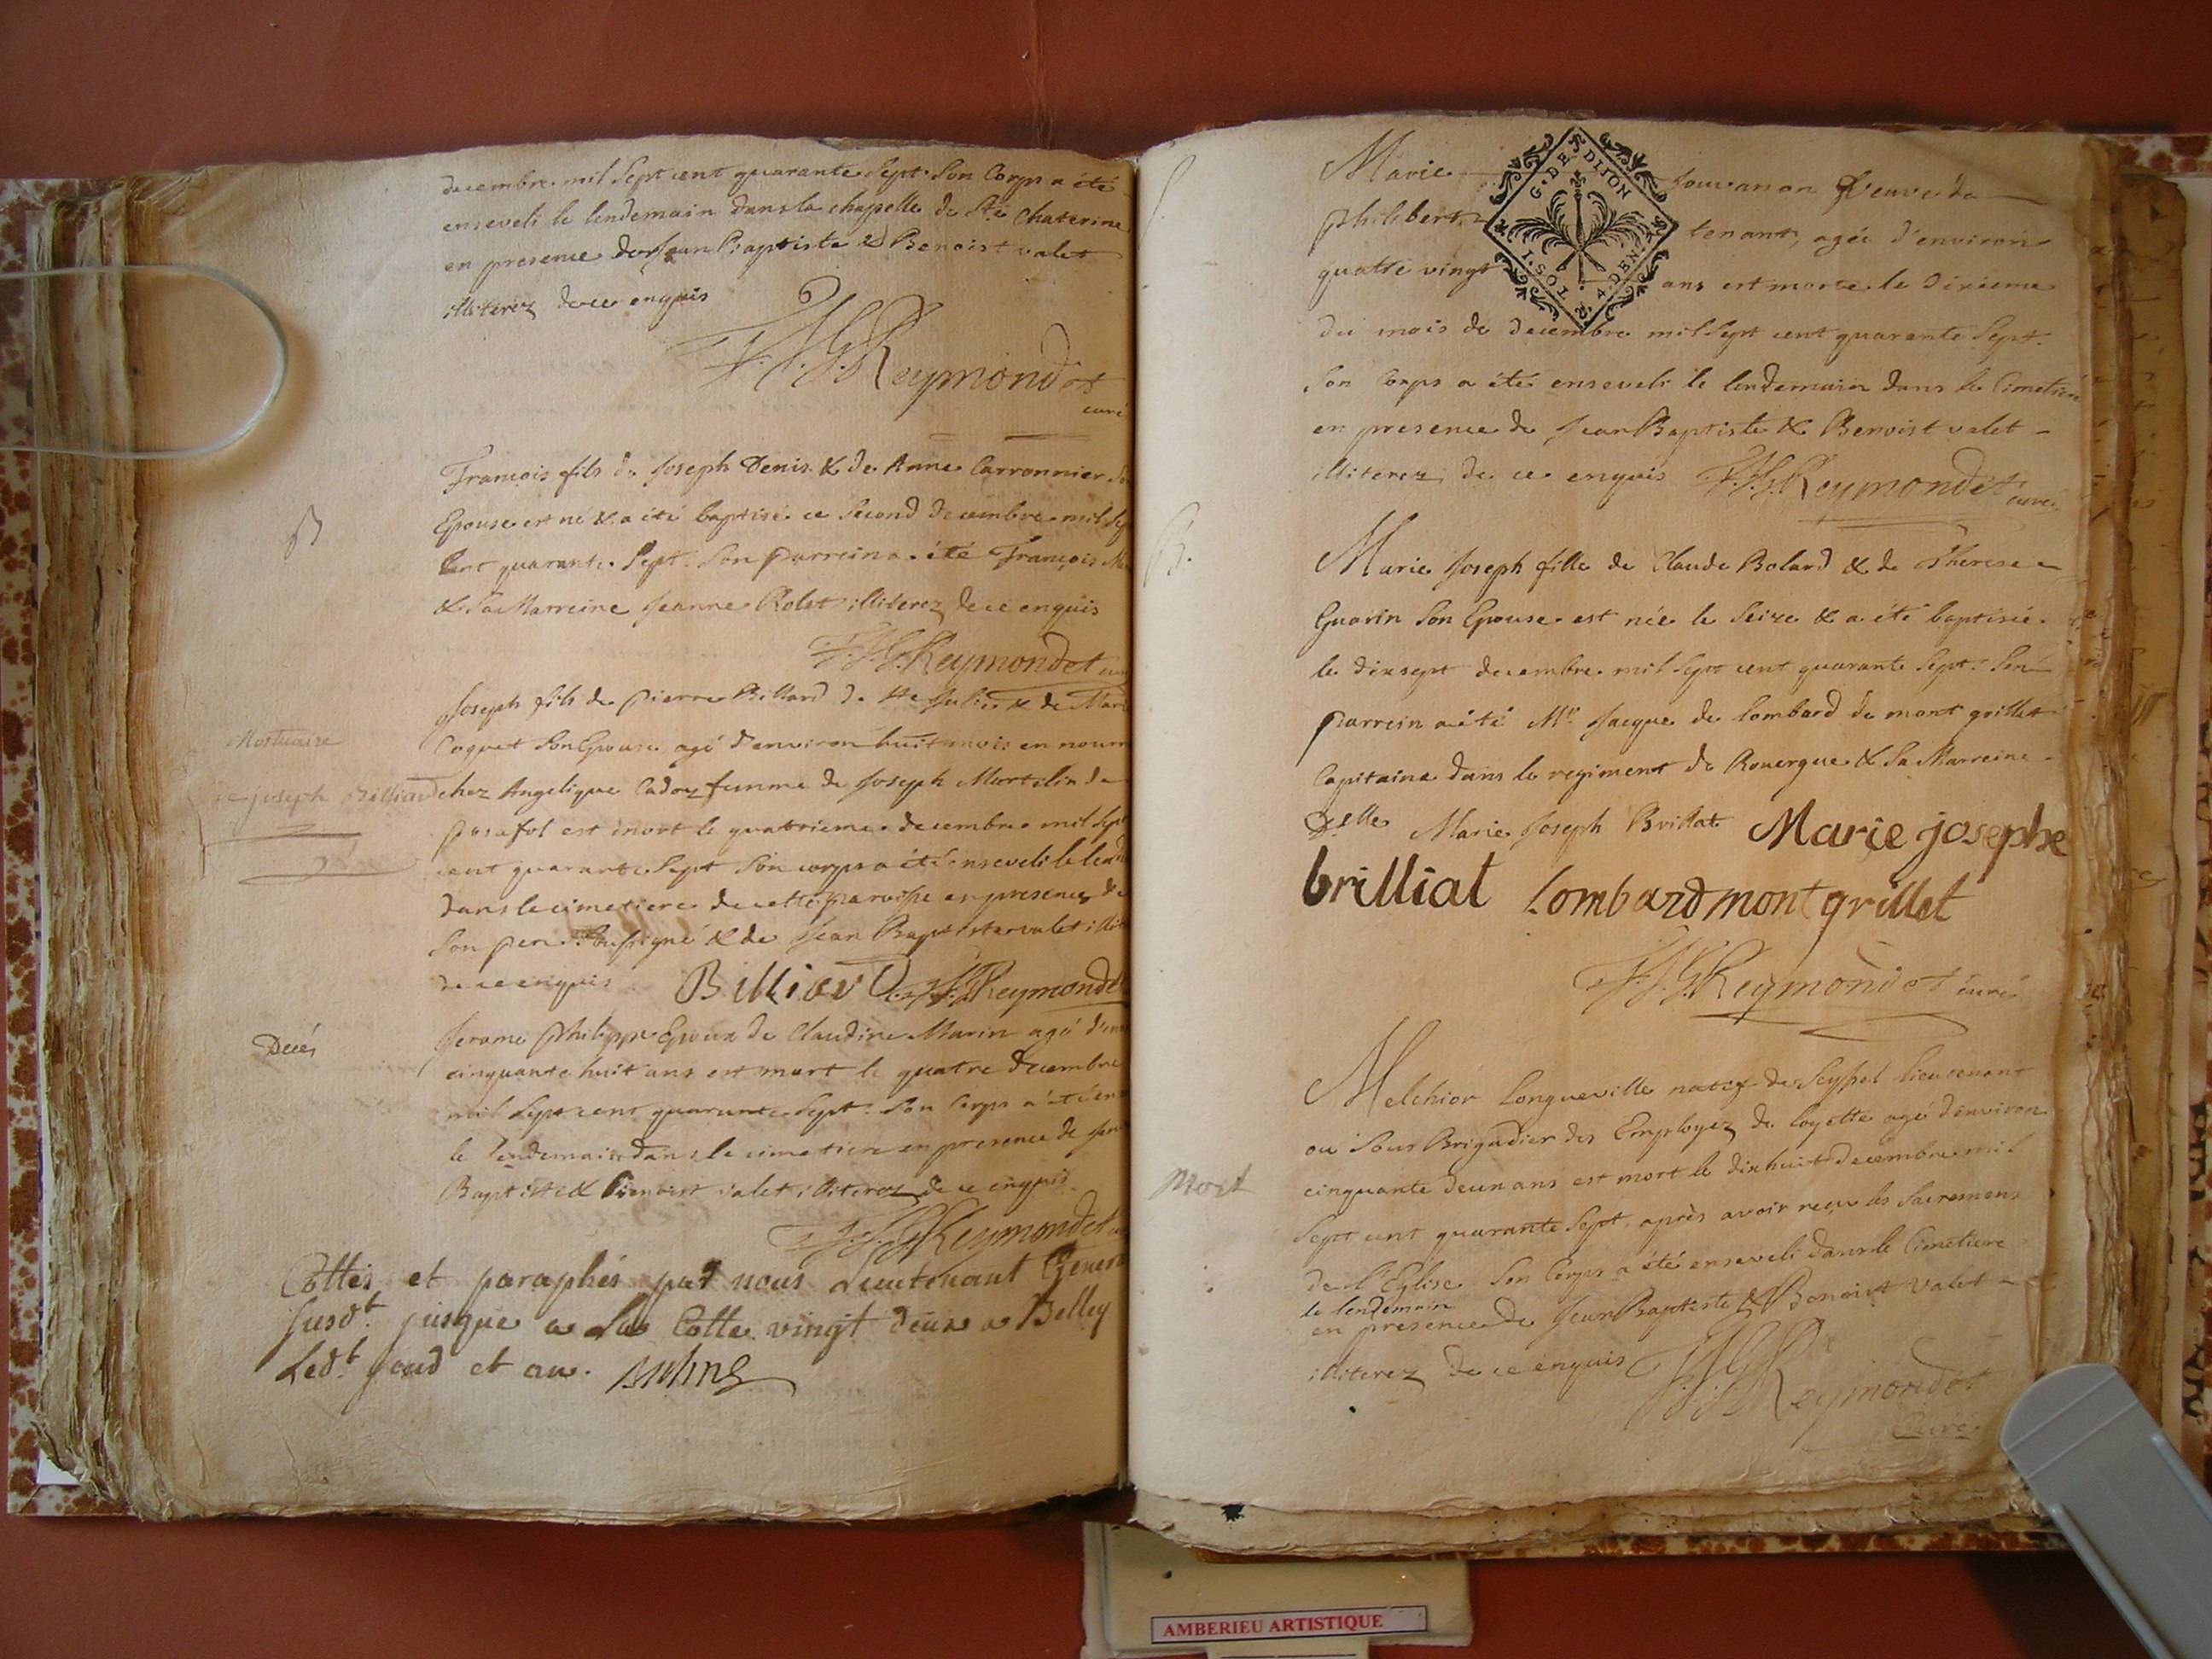 decembre mil Sept cent quarante Sept. Son Corps a été
enseveli le lendemain dans la chapelle de Ste Chaterine
en presence de Jean Baptiste & Benoist valet
illiterez de ce enquis
Reymondet
curé
François fils de Joseph Denis & de Anne Carronnier
B
Epouse est né & a été baptisé ce Second decembre mil
cent quarante Sept. Son parrein a été François
& Sa Marreine Jeanne Rolet illiterez de ce enquis
Reymondet
Joseph fils de pierre Billard de & de
Mortuaire
Coquet Son Epouse agé d'environ huit mois en
de joseph Billiard
chez Angelique Cadoz femme de Joseph Martelin de
posafol est mort le quatrieme decembre mil Sept
cent quarante Sept Son corps a été enseveli le
dans le cimetiere de cette paroisse en presence de
Son pere Soussigné & de Jean Baptiste valet
de ce enquis Billiard Reymondet
Decés
Jerome philippe Epoux de Claudine Marin agé
cinquante huit ans est mort le quatre decembre
mil Sept cent quarante Sept. Son Corps a été
le lendemain dans le cimetiere en presence de
Baptiste & Benoist valet illiterez de ce enquis
Reymondet
Cottés et paraphés par nous Lieutenant
Susdt. jusque a La Cotte vingt deux a Belley
Ledt. jour et an.
Marie Jouvanon Veuve de
G. DE DIJON
philibert tenant, agée d'environ
quatre vingt ans est morte le dixieme
I. SOL. 4 DEN.
du mois de decembre mil Sept cent quarante Sept.
Son Corps a été enseveli le lendemain dans le Cimetiere
en presence de Jean Baptiste & Benoist valet
illiterez de ce enquis Reymondet curé
B.
Marie Joseph fille de Claude Bolard & de Therese
Guarin Son Epouse est née le Seize & a été baptisée
le dixsept decembre mil Sept cent quarante Sept. Son
parrein a été Mr. Jacque de Lombard de mont grillet
Capitaine dans le regiment de Rouergue & Sa Marreine
Delle Marie Joseph Brillat Marie josephe
brilliat Lombard montgrillet
Reymondet curé
Melchior Longueville natif de Seyssel lieutenant
ou Sous Brigadier des Employez de Loyette agé d'environ
Mort
cinquante deux ans est mort le dixhuit decembre mil
Sept cent quarante Sept, après avoir reçu les Sacremens
de l'Eglise Son Corps a été enseveli dans le Cimetiere
le lendemain
en presence de Jean Baptiste & Benoist valet
illiterez de ce enquis Reymondet
Curé
AMBERIEU ARTISTIQUE